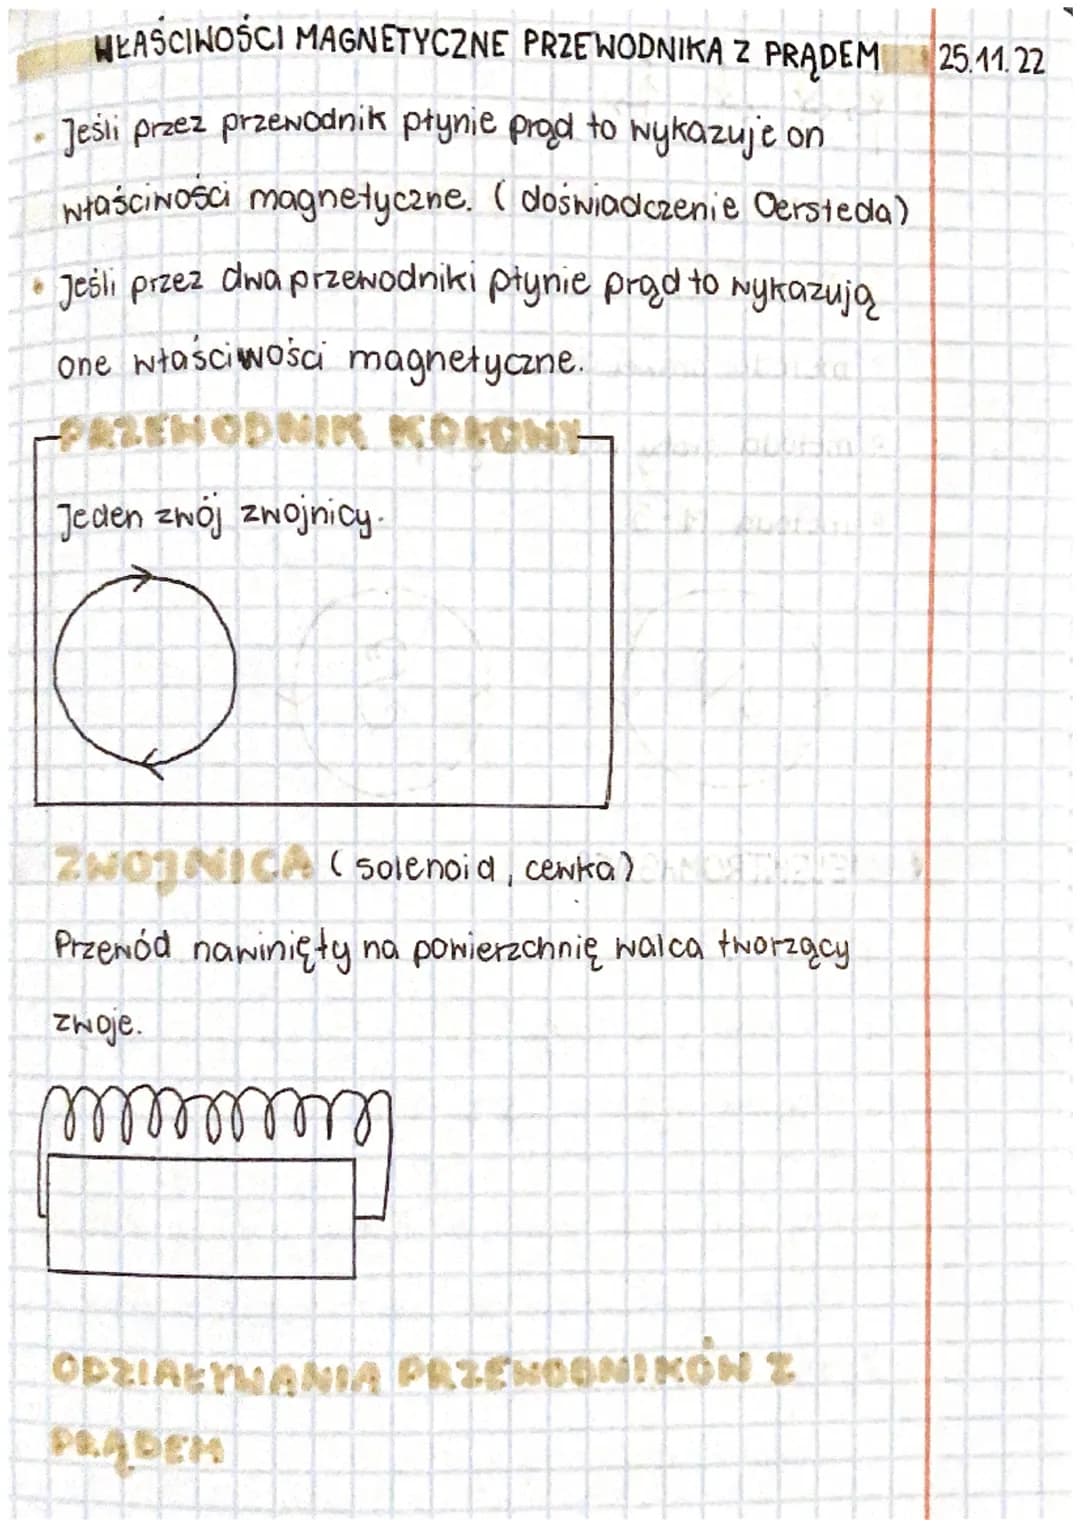 WŁAŚCIWOŚCI MAGNETYCZNE PRZEWODNIKA Z PRĄDEM 25.11.22
• Jeśli przez przewodnik płynie prąd to wykazuje on
właściwości magnetyczne. (doświadczenie Oersteda)
• Jeśli przez dwa przewodniki płynie prąd to wykazują
one właściwości magnetyczne.
PRZEWODNIK KOŁOWY
Jeden zwój zwojnicy.
ZWOJNICA (solenoid, cewka)
Przewód nawinięty na powierzchnię walca tworzący
zwoje.
ODZIAŁYWANIA PRZEWODNIKÓW Z
PRĄDEM